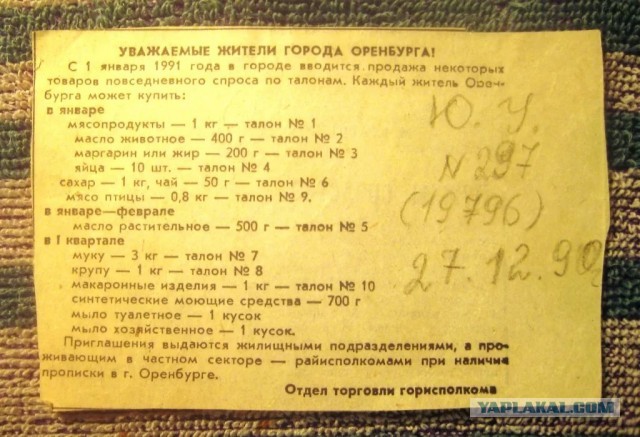 УВАЖАЕМЫЕ ЖИТЕЛИ ГОРОДА ОРЕНБУРГА!
С 1 января 1991 года в городе вводится продажа некоторых
товаров повседневного спроса по талонам. Каждый житель Орен-
бурга может купить:
в январе
мясопродукты — 1 кг — талон № 1
масло животное — 400 г — талон № 2
маргарин или жир — 200 г — талон № 3
яйца — 10 шт. — талон № 4
сахар — 1 кг, чай — 50 г — талон № 6
мясо птицы — 0,8 кг — талон № 9.
в январе—феврале
масло растительное — 500 г — талон № 5
в I квартале
муку — 3 кг — талон № 7
крупу — 1 кг — талон № 8
макаронные изделия — 1 кг — талон № 10
синтетические моющие средства — 700 г
мыло туалетное — 1 кусок
мыло хозяйственное — 1 кусок.
Приглашения выдаются жилищными подразделениями, а про-
живающим в частном секторе — райисполкомами при наличии
прописки в г. Оренбурге.
Отдел торговли горисполкома
Ю. У.
N 297
(19796)
27.12.90
YAPLAKAL.COM